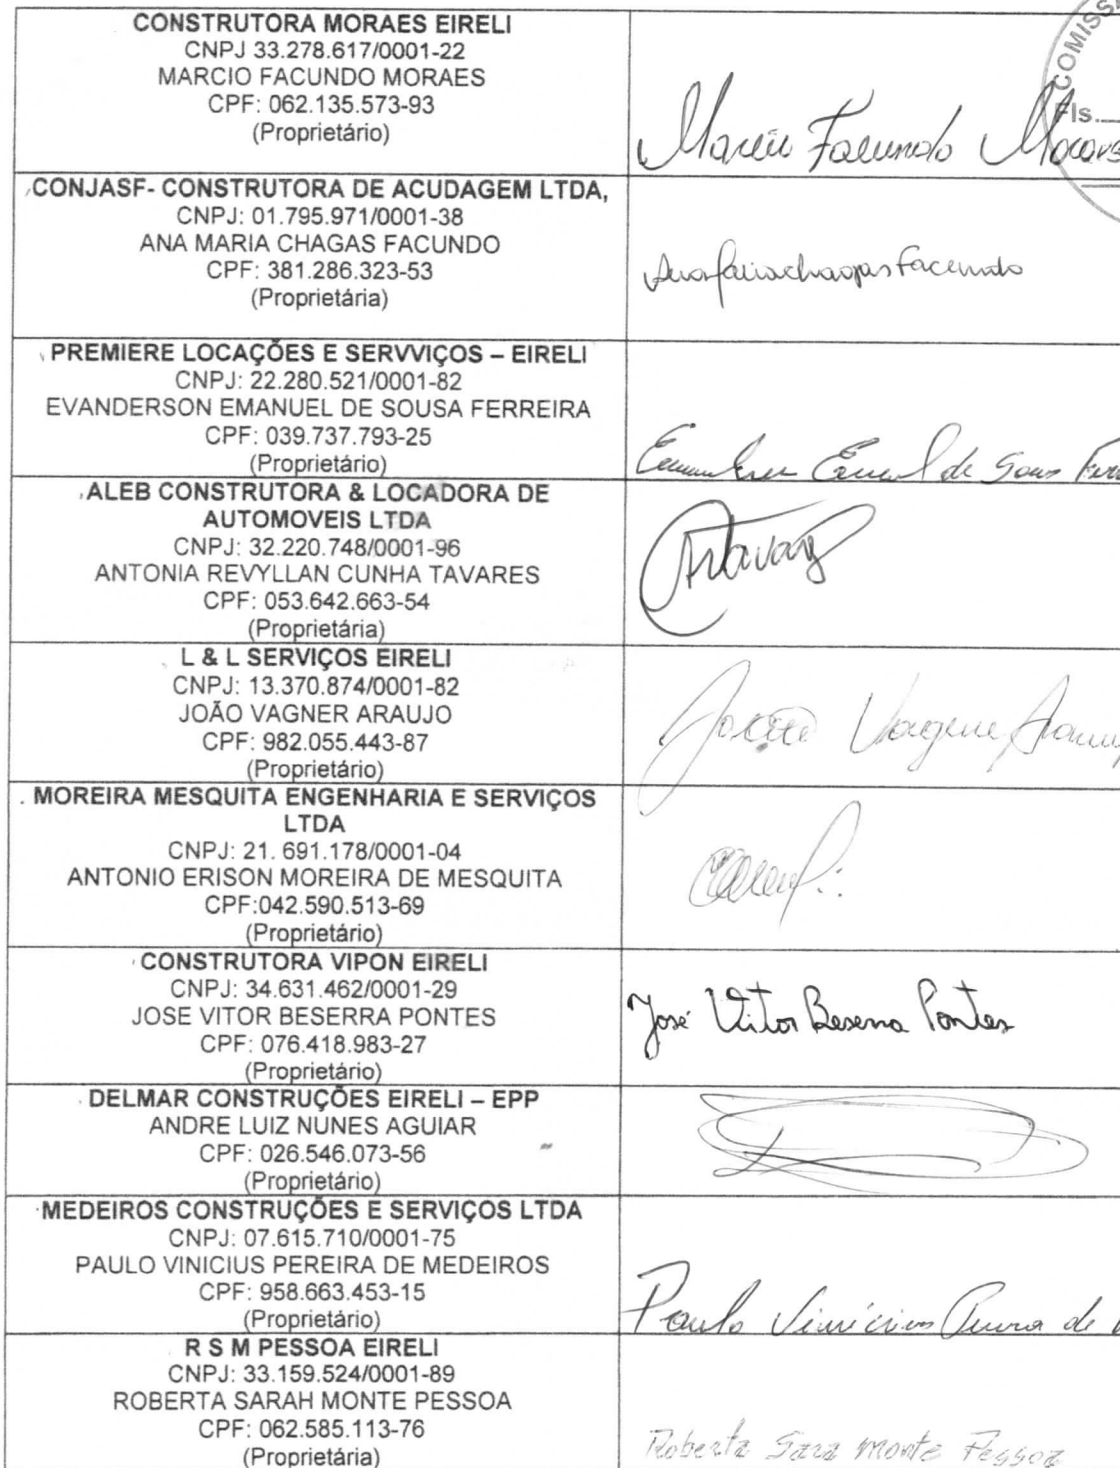 CONSTRUTORA MORAES EIRELI
CNPJ 33.278.617/0001-22
MARCIO FACUNDO MORAES
CPF: 062.135.573-93
(Proprietário)
COMISSÃ
Fls.
Marcio Facundo Moraes
CONJASF- CONSTRUTORA DE ACUDAGEM LTDA,
CNPJ: 01.795.971/0001-38
ANA MARIA CHAGAS FACUNDO
CPF: 381.286.323-53
(Proprietária)
Ana Maria chagas Facundo
PREMIERE LOCAÇÕES E SERVVIÇOS – EIRELI
CNPJ: 22.280.521/0001-82
EVANDERSON EMANUEL DE SOUSA FERREIRA
CPF: 039.737.793-25
(Proprietário)
de Sousa
ALEB CONSTRUTORA & LOCADORA DE
AUTOMOVEIS LTDA
CNPJ: 32.220.748/0001-96
ANTONIA REVYLLAN CUNHA TAVARES
CPF: 053.642.663-54
(Proprietária)
L & L SERVIÇOS EIRELI
CNPJ: 13.370.874/0001-82
JOÃO VAGNER ARAUJO
CPF: 982.055.443-87
(Proprietário)
João Vagner Arauj
MOREIRA MESQUITA ENGENHARIA E SERVIÇOS
LTDA
CNPJ: 21. 691.178/0001-04
ANTONIO ERISON MOREIRA DE MESQUITA
CPF:042.590.513-69
(Proprietário)
CONSTRUTORA VIPON EIRELI
CNPJ: 34.631.462/0001-29
JOSE VITOR BESERRA PONTES
CPF: 076.418.983-27
(Proprietário)
José Vitor Beserra Pontes
DELMAR CONSTRUÇÕES EIRELI – EPP
ANDRE LUIZ NUNES AGUIAR
CPF: 026.546.073-56
(Proprietário)
MEDEIROS CONSTRUÇÕES E SERVIÇOS LTDA
CNPJ: 07.615.710/0001-75
PAULO VINICIUS PEREIRA DE MEDEIROS
CPF: 958.663.453-15
(Proprietário)
Paulo Vinícius Pereira de
R S M PESSOA EIRELI
CNPJ: 33.159.524/0001-89
ROBERTA SARAH MONTE PESSOA
CPF: 062.585.113-76
(Proprietária)
Roberta Sara Monte Pessoa